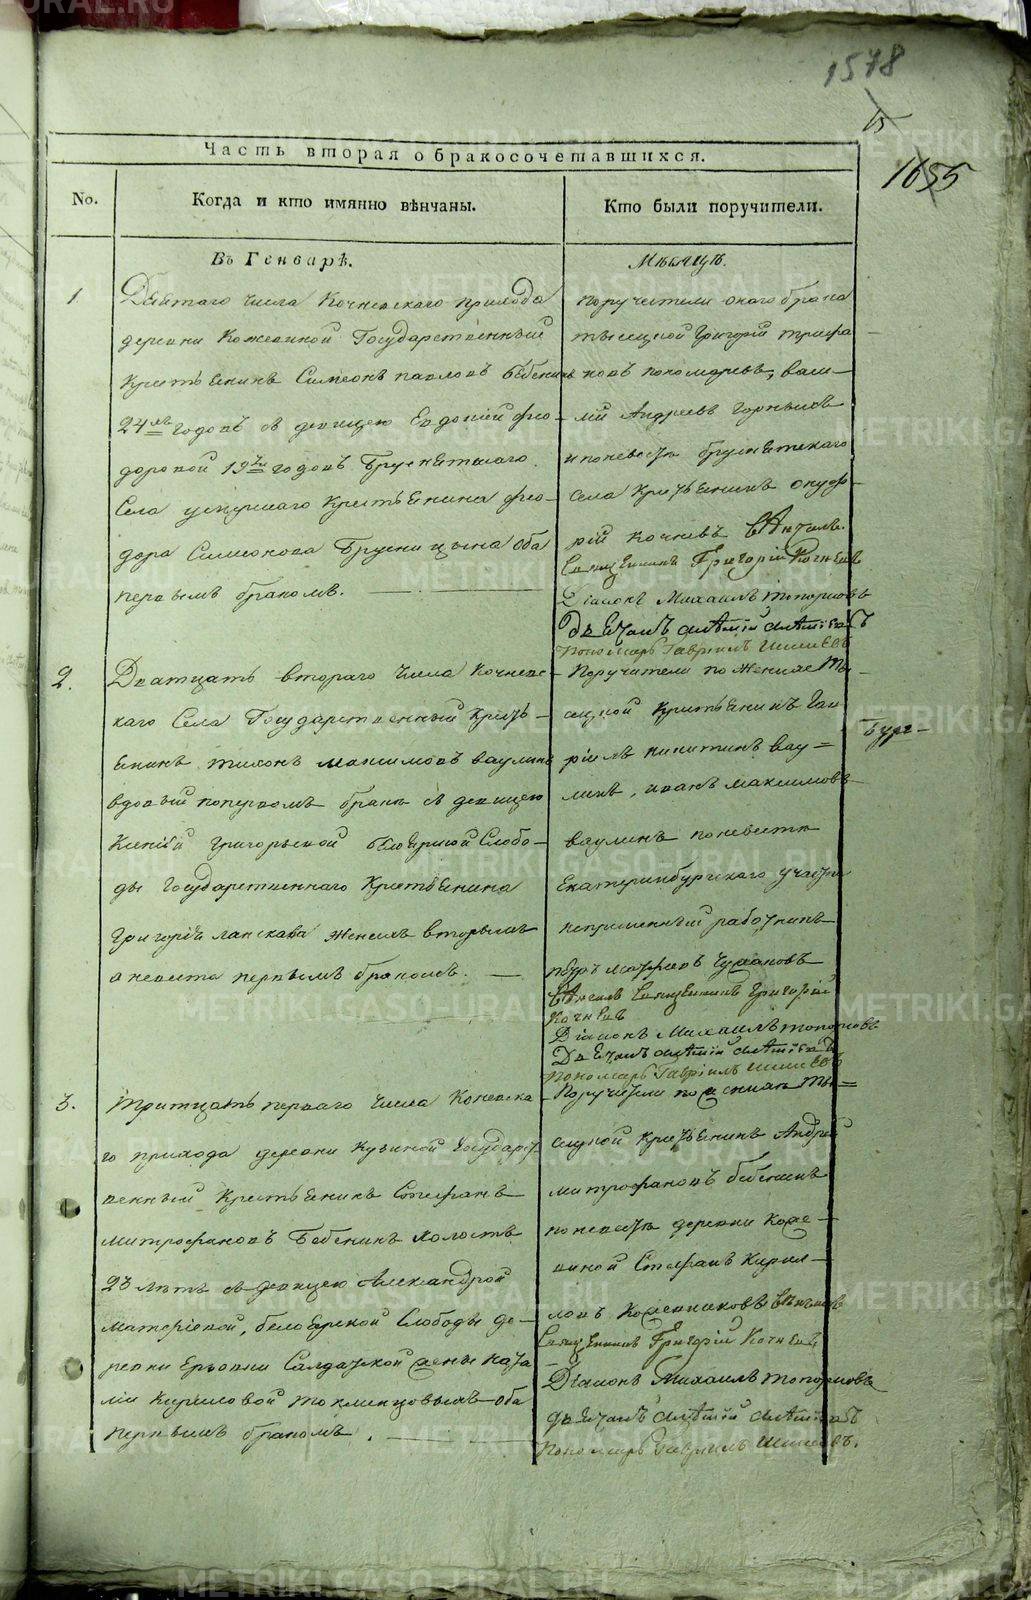 1578
15
1655
Часть вторая о бракосочетавшихся.
No.
Когда и кто имянно вѣнчаны.
Кто были поручители.
Въ Генварѣ.
Мѣсяцѣ.
1.
Девятаго числа Кочневскаго прихода
деревни Кожевиной Государственный
крестьянинъ Симеонъ павловъ Бабенинъ
24 годовъ съ девицею Евдокіей фео-
доровой 19 годовъ Бруснятскаго
Села умершаго крестьянина фео-
дора Симеонова Брусницына оба
первымъ бракомъ.
поручители онаго брака
тысяцкой Григорій трифа
новъ пономаревъ, васи-
лій Андреевъ горныхъ
и по невестѣ бруснятскаго
села крестьянинъ онуф-
рій кочневъ венчалъ
Священникъ Григорій Кочневъ
Діаконъ Михаилъ топорковъ
Дьячокъ
Пономарь Гавріилъ Шишевъ
2.
Дватцать втораго числа Кочневс-
каго Села Государственный кресть-
янинъ тихонъ максимовъ ваулинъ
вдовый попервомъ бракѣ съ девицею
Ксеніей Григорьевой белоярской Слобо-
ды Государственнаго Крестьянина
Григорія женихъ вторымъ
а невеста первымъ бракомъ.
Поручители по женихе ты-
сяцкой крестьянинъ Гав
ріилъ никитинъ вау=
линъ, иванъ максимовъ
ваулинъ по невестѣ
Екатеринбургскаго
непременный работникъ
венчалъ Священникъ Григорій
Кочневъ
Діаконъ Михаилъ топорковъ
Дьячокъ
Пономарь Гавріилъ Шишевъ
3.
Тритцать перваго числа Коневска-
го прихода деревни Кузиной Государст-
венный крестьянинъ Стефанъ
митрофановъ Бабенинъ холостъ
летъ съ девицею Александрой
белоярской Слободы де-
ревни Салдатской жены ната
лии Кириловой оба
первымъ бракомъ.
Поручители по женихе ты=
сяцкой крестьянинъ Андрей
митрофановъ бабенинъ
по невестѣ деревни Коже-
виной Стефанъ Кирил-
ловъ Кожевниковъ венчалъ
Священникъ Григорій Кочневъ
Діаконъ Михаилъ топорковъ
дьячокъ
Пономарь Гавріилъ Шишевъ.
METRIKI.GASO-URAL.RU